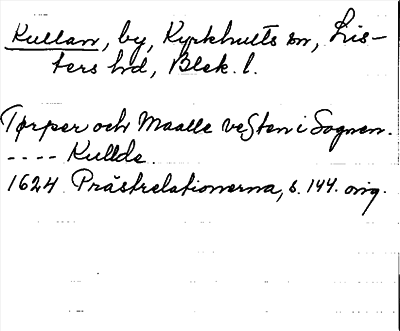 Kullan, by, Kyrkhults sn, Lis-
ters hd, Blek. l.
Tørper och Maalle vesten i Sognen.
---- Kullde.
1624 Prästrelationerna, s. 144. orig.